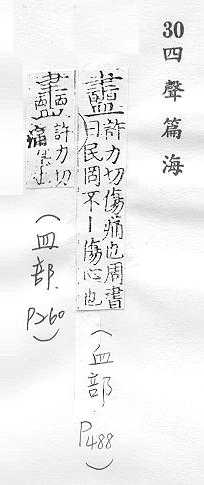 30四聲篇海
衋許力切傷痛也周書
曰民罔不丨傷心也
(血部. P488)
許力切
痛
(皿部. P260)